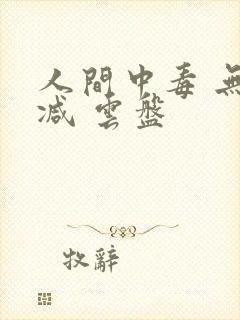 人間中毒 無
減 雲盤
牧辭